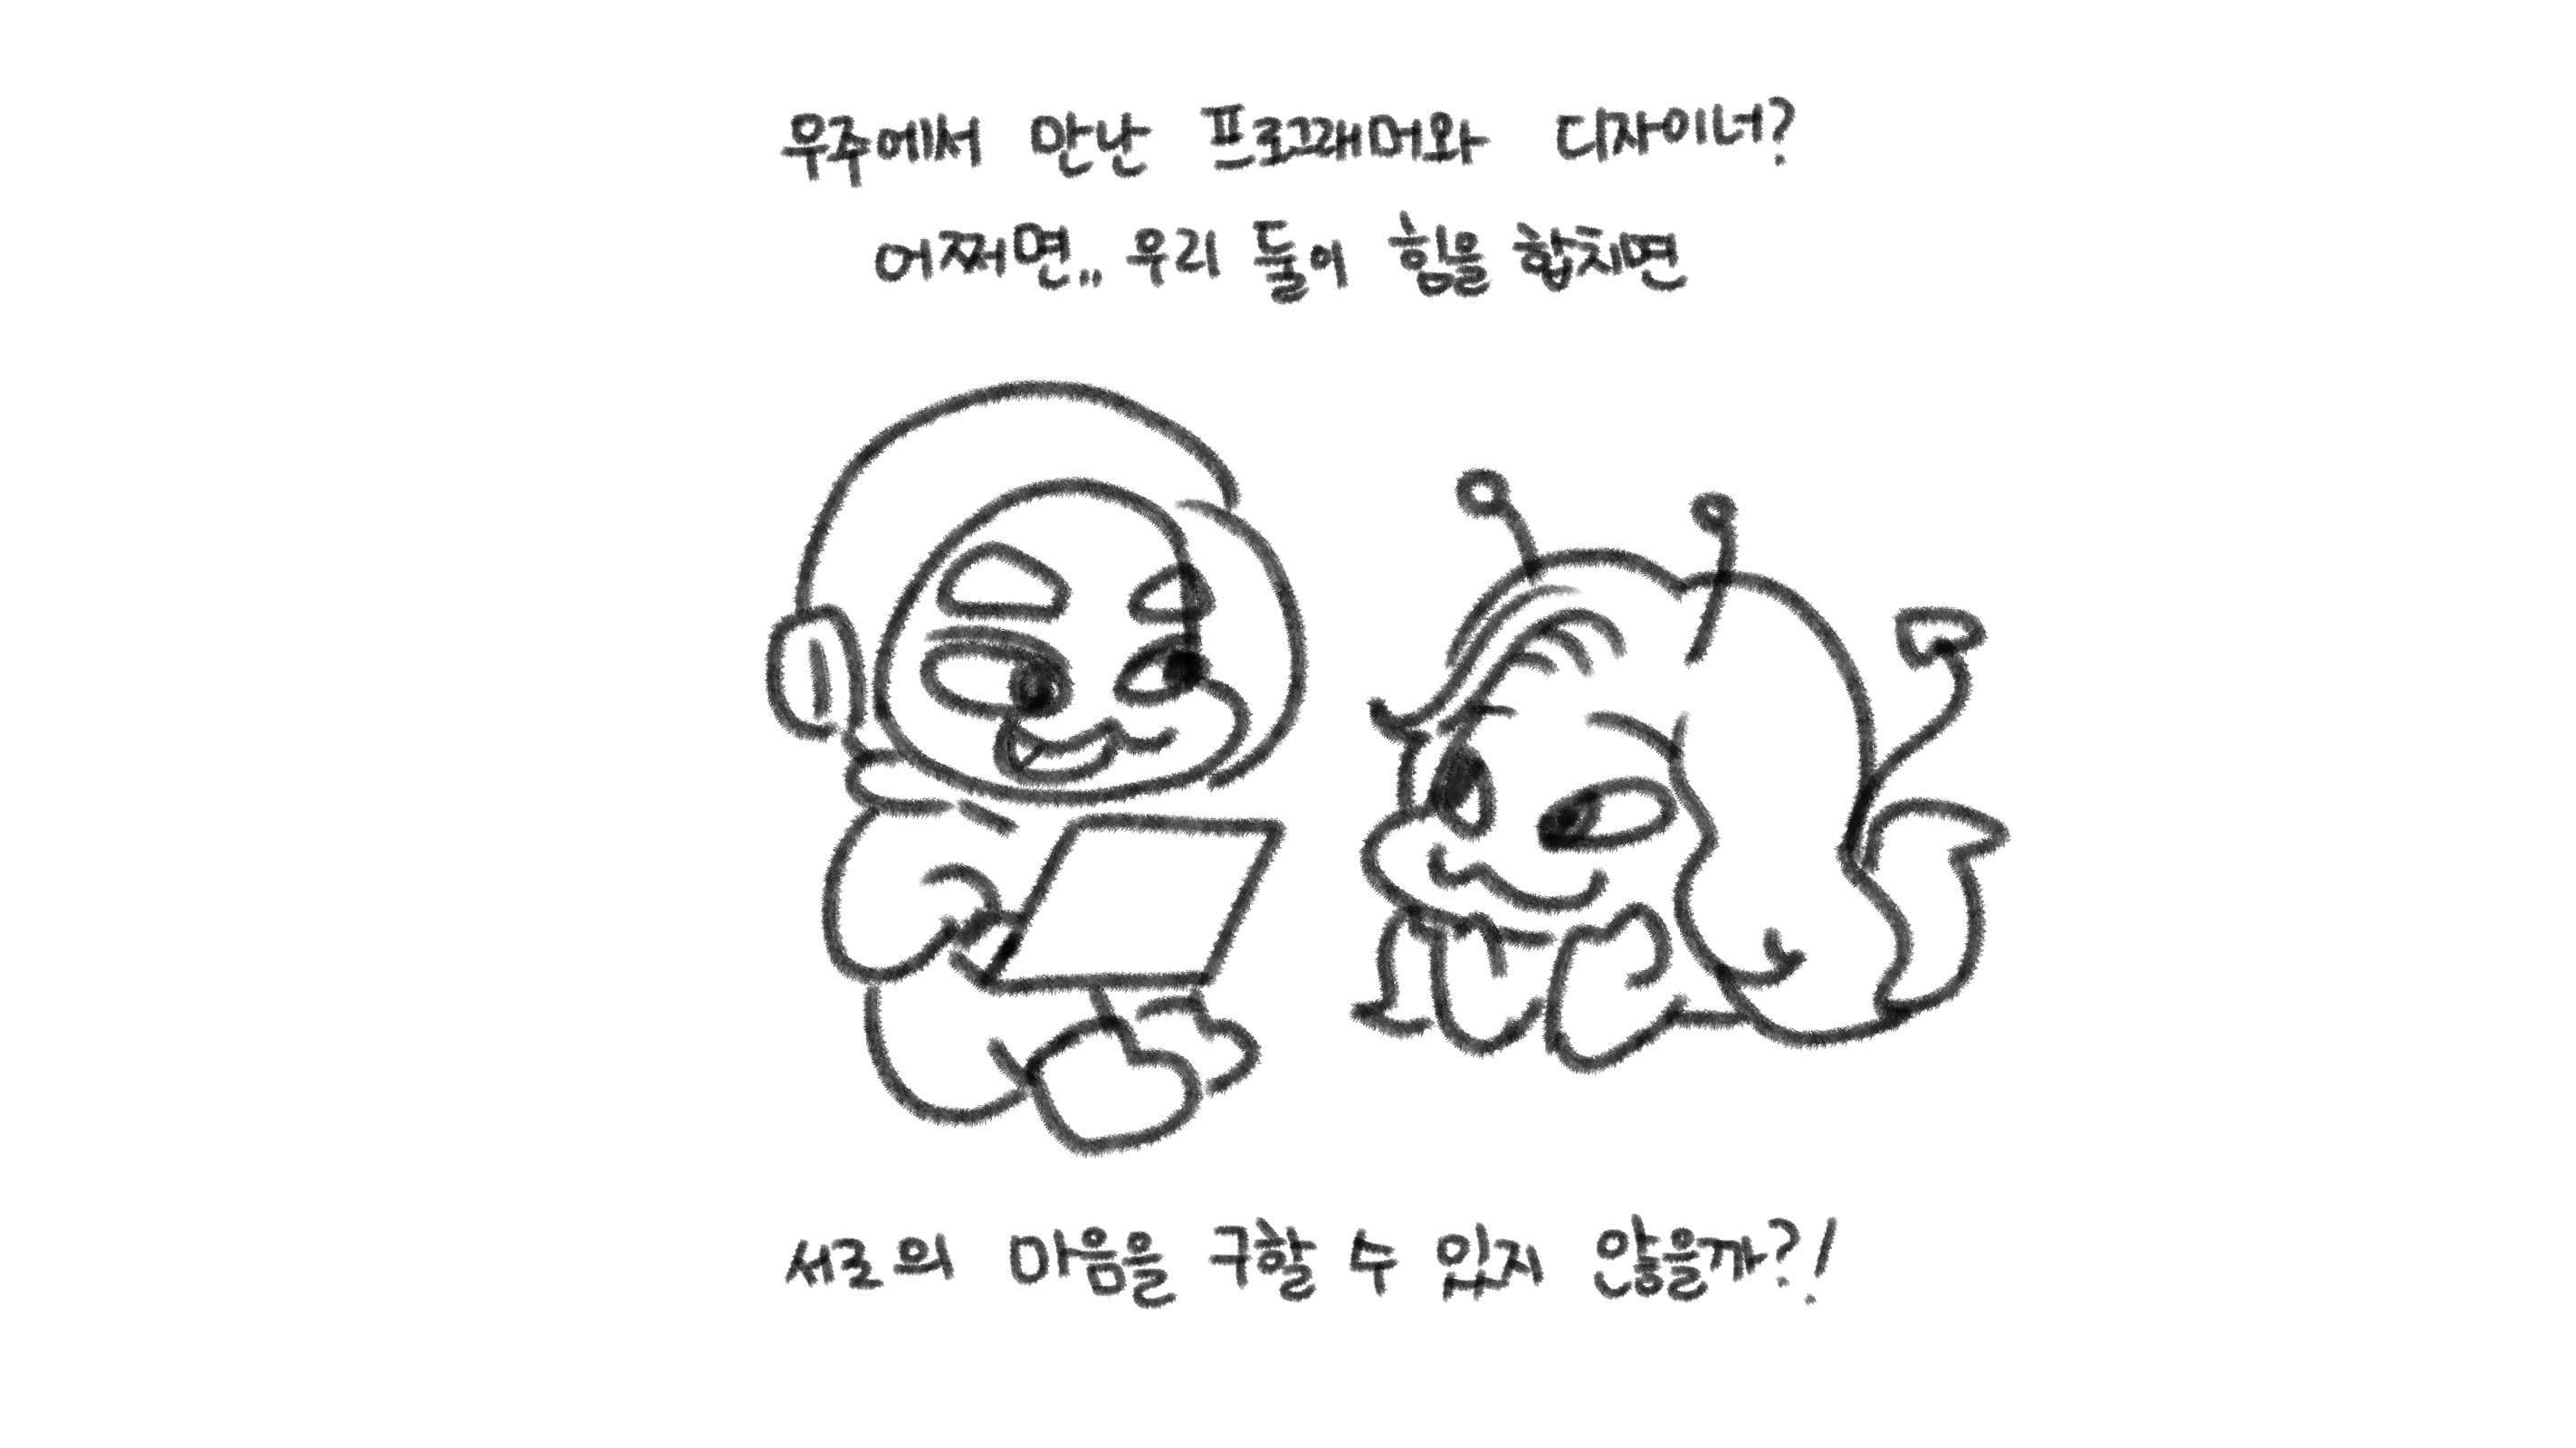 우주에서 만난 프로그래머와 디자이너?
어쩌면.. 우리 둘이 힘을 합치면
서로의 마음을 구할 수 있지 않을까?!